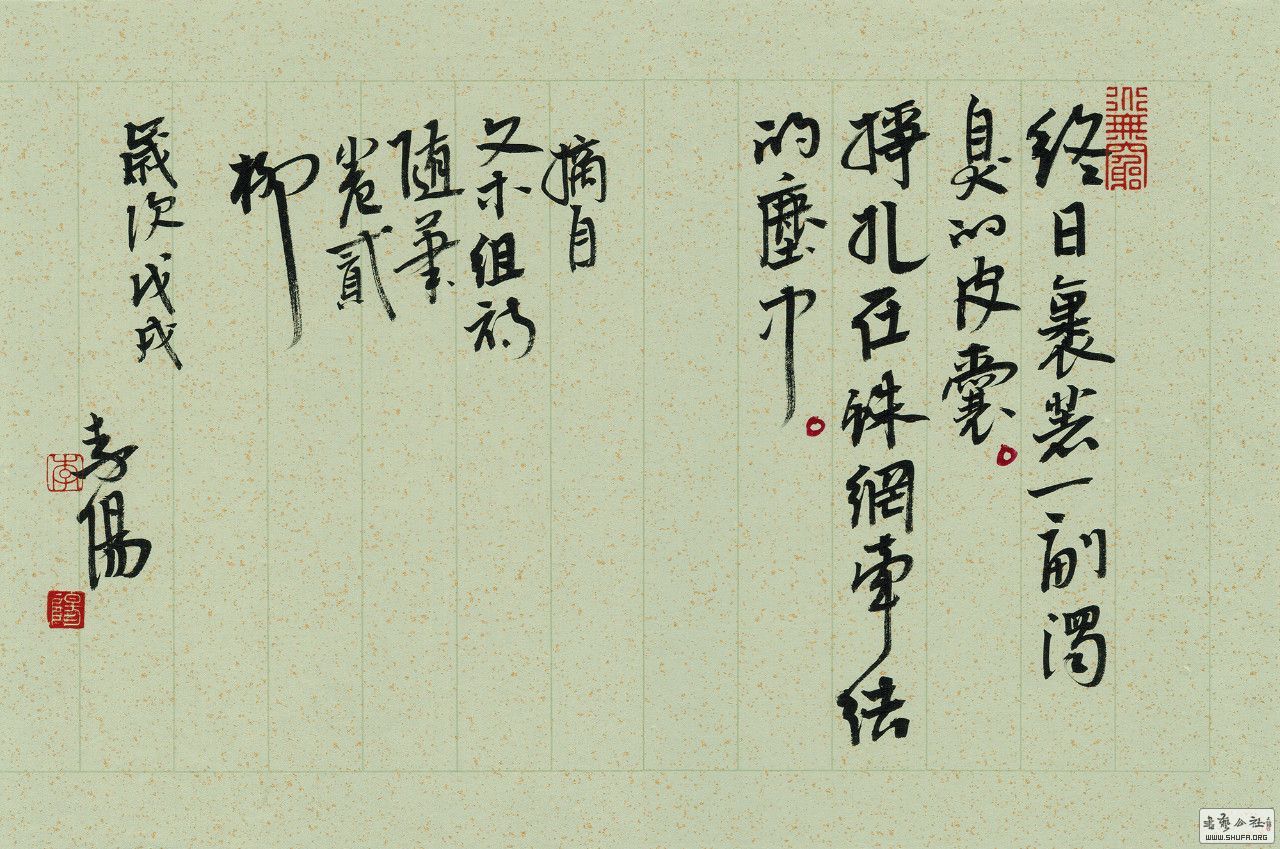 終日裹着一副濁
臭的皮囊。
掙扎在蛛網牽結
的塵中。
摘自
又木組詩
隨筆
卷貳
柳
歲次戊戌
陽
书艺公社
WWW.SHUFA.ORG